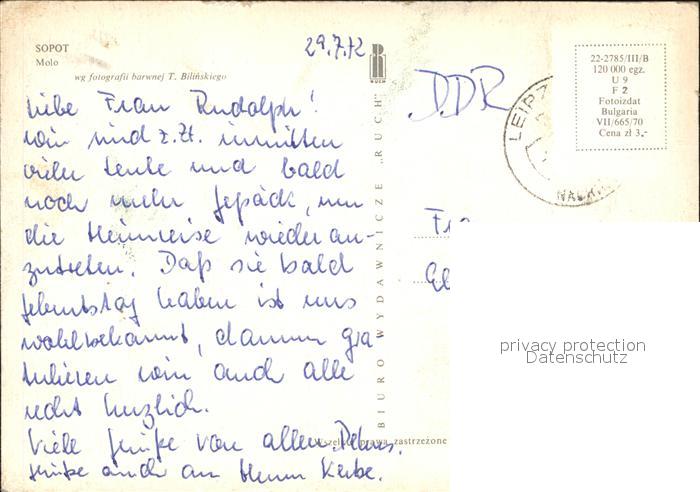 SOPOT
Molo
wg fotografii barwnej T. Bilińskiego
29.7.72
Liebe Frau Rudolph!
wir sind z.Zt. inmitten
vieler Leute und bald
noch mehr Gepäck, um
die Heimreise wieder an-
zutreten. Daß sie bald
Geburtstag haben ist uns
wohlbekannt, darum gra
tulieren wir auch alle
recht herzlich.
Viele Grüße von allen
Grüße auch an Herrn
BIURO WYDAWNICZE „RUCH”
prawa zastrzeżone
DDR
LEIPZ
22-2785/III/B
120 000 egz.
U 9
F 2
Fotoizdat
Bulgaria
VII/665/70
Cena zł 3,-
privacy protection
Datenschutz